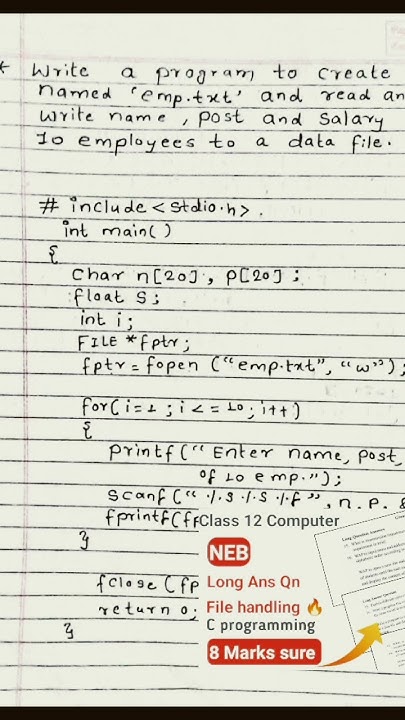 * Write a program to create
named 'emp.txt' and read an
write name, post and Salary
10 employees to a data file.
# include <stdio.h>.
int main()
{
Char n[20], p[20];
float S;
int i;
FILE *fptr;
fptr = fopen ("emp.txt", "w");
for(i=1; i<=10; i++)
{
Printf(" Enter name, post,
of 10 emp.");
Scanf (" %s %s %f ", n, p, &
fprintf(fp
}
fclose (fp
return 0;
}
Class 12 Computer
NEB
Long Ans Qn
File handling 🔥
C programming
8 Marks sure